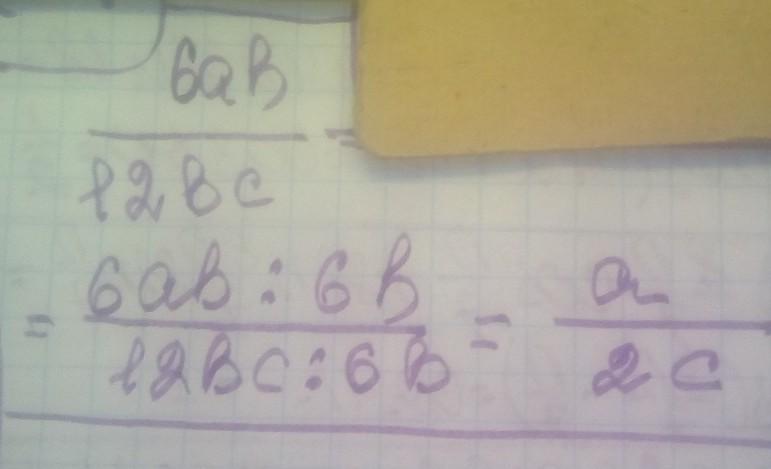 6ab
12bc =
= 6ab : 6b / 12bc : 6b = a / 2c